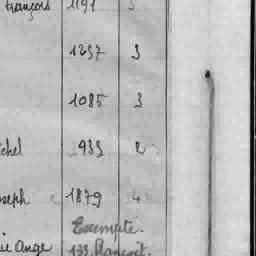 françois 1191 3
1237 3
1085 3
chel 933 2
oseph 1879 4
Exempté.
ie Ange 133.